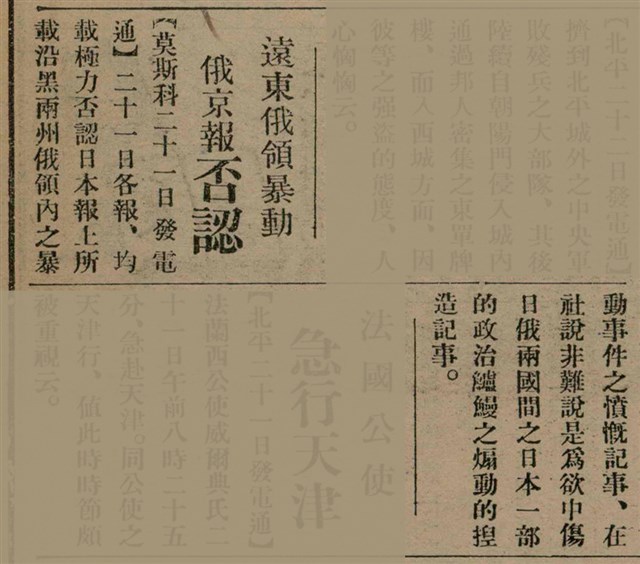 【北平二十一日發電通】
擠到北平城外之中央軍
敗殘兵之大部隊、其後
陸續自朝陽門侵入城內
通過邦人密集之東單牌
樓、面入西城方面、因
彼等之强盜的態度、人
心恟恟云。
遠東俄領暴動
俄京報否認
【莫斯科二十一日發電
通】二十一日各報、均
載極力否認日本報上所
載沿黑兩州俄領內之暴
動事件之憤慨記事、在
社說非難說是爲欲中傷
日俄兩國間之日本一部
的政治鱸鰻之煽動的揑
造記事。
法國公使
急行天津
【北平二十一日發電通】
法蘭西公使威爾典氏二
十一日午前八時二十五
分、急赴天津。同公使之
天津行、値此時時節頗
被重視云。